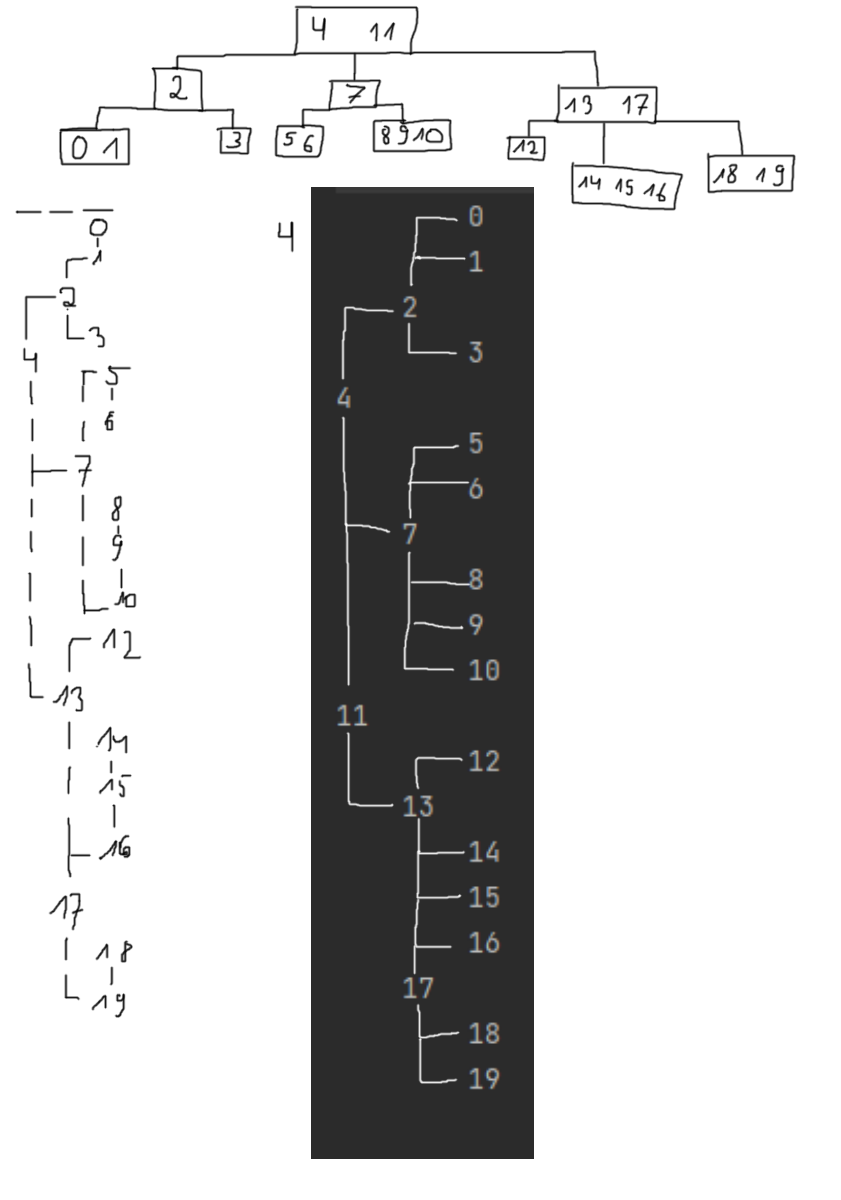 4 11
2
7
13 17
0 1
3
5 6
8 9 10
12
14 15 16
18 19
0
1
2
3
4
5
6
7
8
9
10
12
13
14
15
16
17
18
19
4
0
1
2
3
4
5
6
7
8
9
10
11
12
13
14
15
16
17
18
19